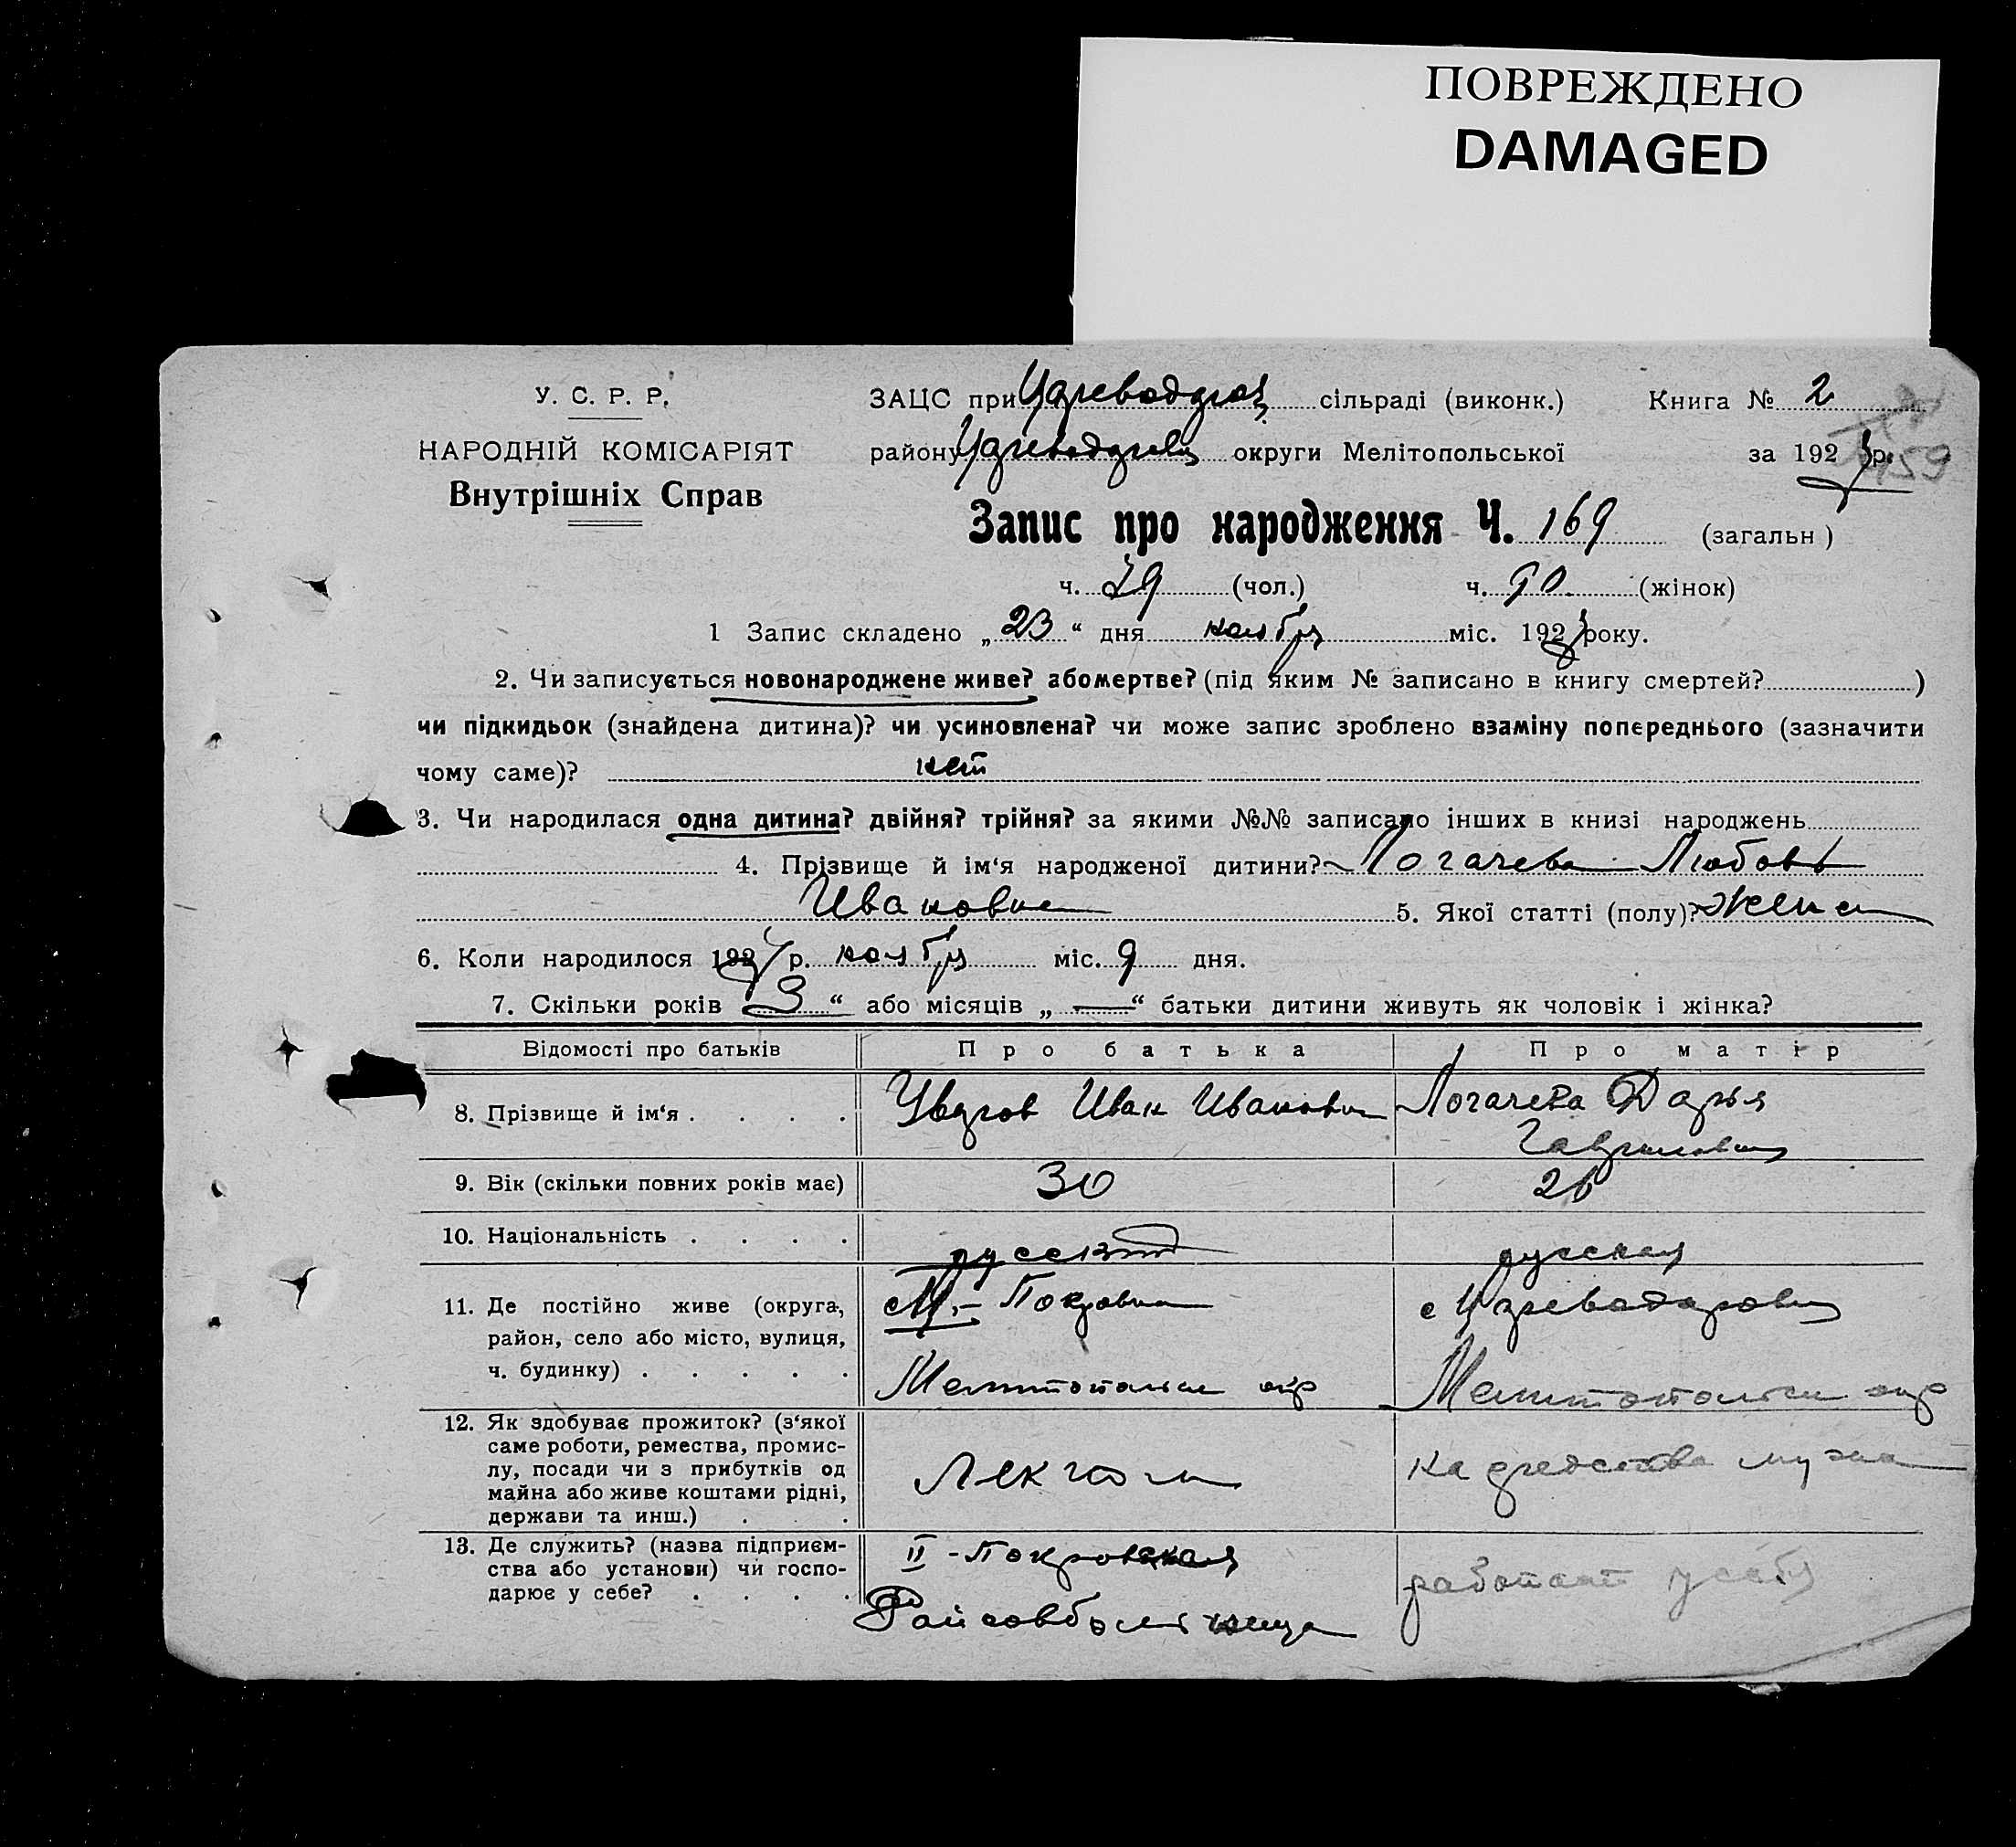 ПОВРЕЖДЕНО
DAMAGED
У. С. Р. Р.
ЗАЦС при сільраді (виконк.) Книга № 2
НАРОДНІЙ КОМІСАРІЯТ
району округи Мелітопольської за 192 р.
159
Внутрішніх Справ
Запис про народження Ч. 169 (загальн)
ч. 79 (чол.) ч. 90 (жінок)
1 Запис складено „23“ дня ноябр міс. 192 року.
2. Чи записується новонароджене живе? або мертве? (під яким № записано в книгу смертей? )
чи підкидьок (знайдена дитина)? чи усиновлена? чи може запис зроблено взаміну попереднього (зазначити
чому саме)? нет
3. Чи народилася одна дитина? двійня? трійня? за якими №№ записано інших в книзі народжень
4. Прізвище й ім‘я народженої дитини? Логачева Любовь
Ивановна 5. Якої статті (полу)? жен
6. Коли народилося 192 р. ноябр міс. 9 дня.
7. Скільки років „3“ або місяців „—“ батьки дитини живуть як чоловік і жінка?
Відомості про батьків Про батька Про матір
8. Прізвище й ім‘я . . . . Уваров Иван Иванович Логачева Дарья
Гавриловна
9. Вік (скільки повних років має) 30 26
10. Національність . . . . русский русская
11. Де постійно живе (округа, район, село або місто, вулиця, ч. будинку) . . . . .
Покровка
Мелитопольск окр
Мелитопольск окр
12. Як здобуває прожиток? (з‘якої саме роботи, ремества, промислу, посади чи з прибутків од майна або живе коштами рідні, держави та инш.) . . .
Лекпом
на средства мужа
13. Де служить? (назва підприємства або установи) чи господарює у себе? . . . .
II - Покровская
Райсовбольница
работает у себя